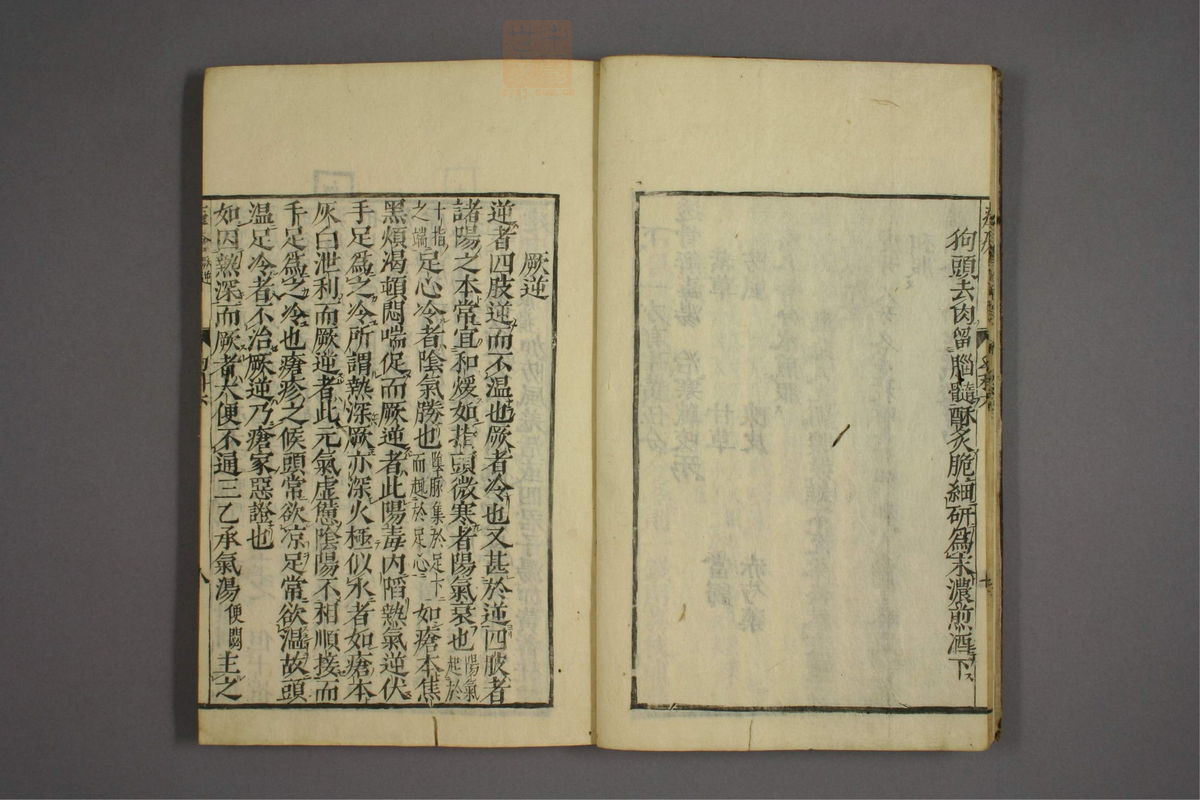 狗頭去肉留腦髓酥炙脆細研爲末濃煎酒下
厥逆
逆者四肢逆而不溫也厥者冷也又甚於逆四肢者
諸陽之本常宜和煖如指頭微寒者陽氣衰也陽氣起於
十指之端足心冷者陰氣勝也陰脉集於足下而趍於足心如瘡本焦
黑煩渴頓悶喘促而厥逆者此陽毒内陷熱氣逆伏
手足爲之冷所謂熱深厥亦深火極似水者如瘡本
灰白泄利而厥逆者此元氣虛憊陰陽不相順接而
手足爲之冷也瘡疹之候頭常欲凉足常欲溫故頭
溫足冷者不治厥逆乃瘡家惡證也
如因熱深而厥者大便不通三乙承氣湯便閟主之